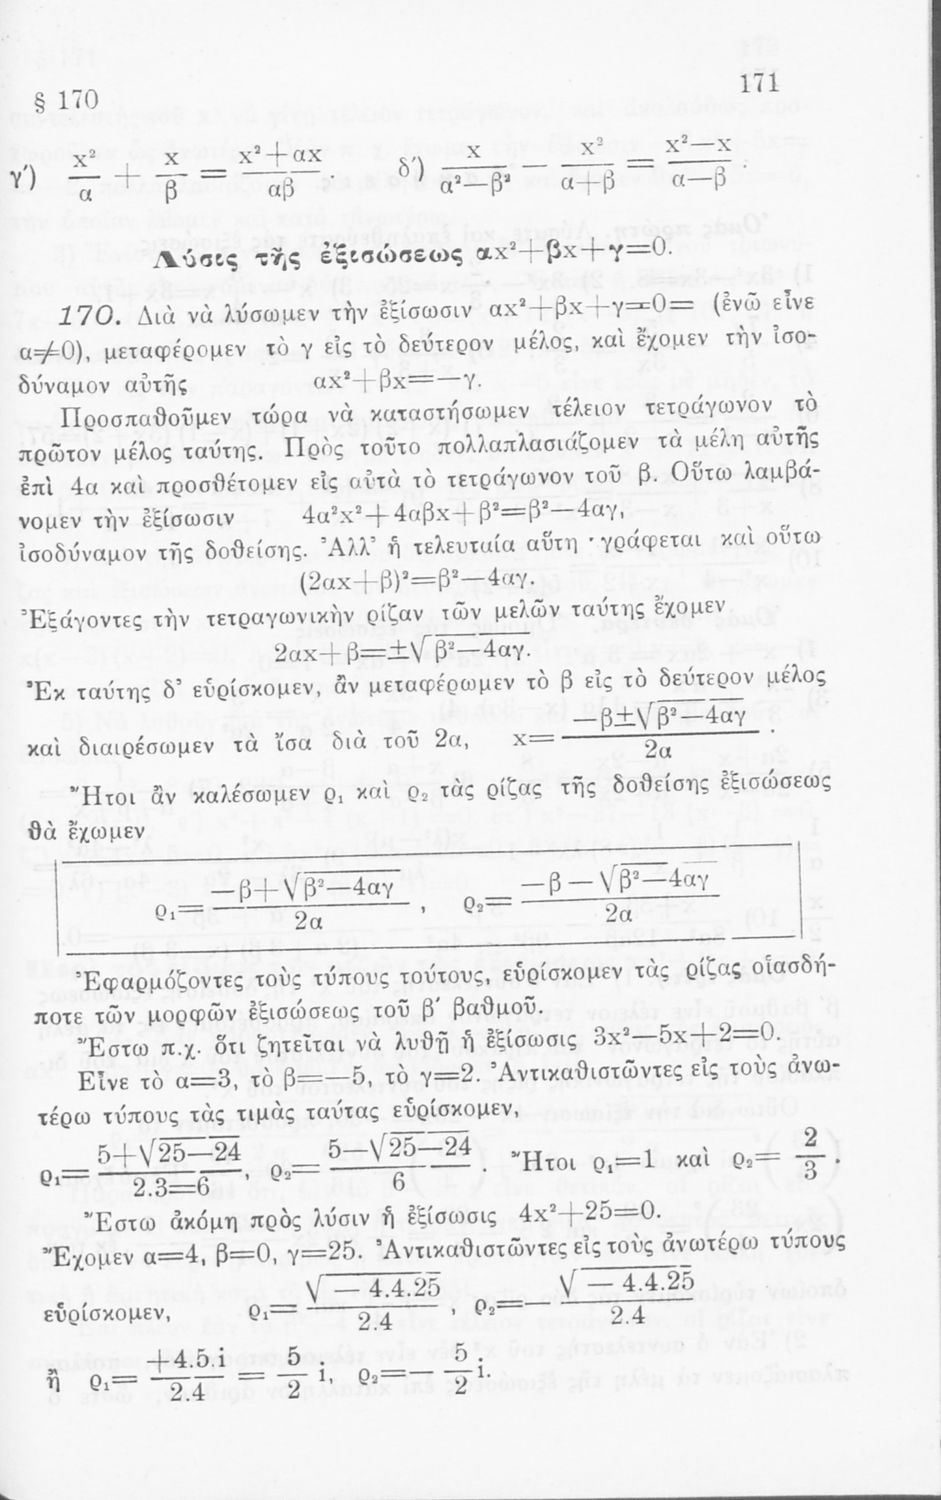 § 170
171
γ′) x²/α + x/β = (x²+αx)/αβ . δ′) x/(α²—β²) — x²/(α+β) = (x²—x)/(α—β) .
Λύσις τῆς ἐξισώσεως αx²+βx+γ=0.
170. Διὰ νὰ λύσωμεν τὴν ἐξίσωσιν αx²+βx+γ=0= (ἐνῶ εἶνε
α≠0), μεταφέρομεν τὸ γ εἰς τὸ δεύτερον μέλος, καὶ ἔχομεν τὴν ἰσο-
δύναμον αὐτῆς αx²+βx=—γ.
Προσπαθοῦμεν τώρα νὰ καταστήσωμεν τέλειον τετράγωνον τὸ
πρῶτον μέλος ταύτης. Πρὸς τοῦτο πολλαπλασιάζομεν τὰ μέλη αὐτῆς
ἐπὶ 4α καὶ προσθέτομεν εἰς αὐτὰ τὸ τετράγωνον τοῦ β. Οὕτω λαμβά-
νομεν τὴν ἐξίσωσιν 4α²x²+4αβx+β²=β²—4αγ,
ἰσοδύναμον τῆς δοθείσης. Ἀλλ' ἡ τελευταία αὕτη γράφεται καὶ οὕτω
(2αx+β)²=β²—4αγ.
Ἐξάγοντες τὴν τετραγωνικὴν ρίζαν τῶν μελῶν ταύτης ἔχομεν
2αx+β=±√(β²—4αγ).
Ἐκ ταύτης δ' εὑρίσκομεν, ἂν μεταφέρωμεν τὸ β εἰς τὸ δεύτερον μέλος
καὶ διαιρέσωμεν τὰ ἴσα διὰ τοῦ 2α, x= (—β±√(β²—4αγ))/2α .
Ἤτοι ἂν καλέσωμεν ρ₁ καὶ ρ₂ τὰς ρίζας τῆς δοθείσης ἐξισώσεως
θὰ ἔχωμεν
ρ₁= (—β+√(β²—4αγ))/2α , ρ₂= (—β—√(β²—4αγ))/2α .
Ἐφαρμόζοντες τοὺς τύπους τούτους, εὑρίσκομεν τὰς ρίζας οἱασδή-
ποτε τῶν μορφῶν ἐξισώσεως τοῦ β′ βαθμοῦ.
Ἔστω π.χ. ὅτι ζητεῖται νὰ λυθῇ ἡ ἐξίσωσις 3x²—5x+2=0.
Εἶνε τὸ α=3, τὸ β=—5, τὸ γ=2. Ἀντικαθιστῶντες εἰς τοὺς ἀνω-
τέρω τύπους τὰς τιμὰς ταύτας εὑρίσκομεν,
ρ₁= (5+√(25—24))/(2.3=6) , ρ₂= (5—√(25—24))/6 . Ἤτοι ρ₁=1 καὶ ρ₂= 2/3 .
Ἔστω ἀκόμη πρὸς λύσιν ἡ ἐξίσωσις 4x²+25=0.
Ἔχομεν α=4, β=0, γ=25. Ἀντικαθιστῶντες εἰς τοὺς ἀνωτέρω τύπους
εὑρίσκομεν, ρ₁= √(—4.4.25)/2.4 , ρ₂=— √(—4.4.25)/2.4
ἢ ρ₁= +4.5.i/2.4 = 5/2 i, ρ₂=— 5/2 i.